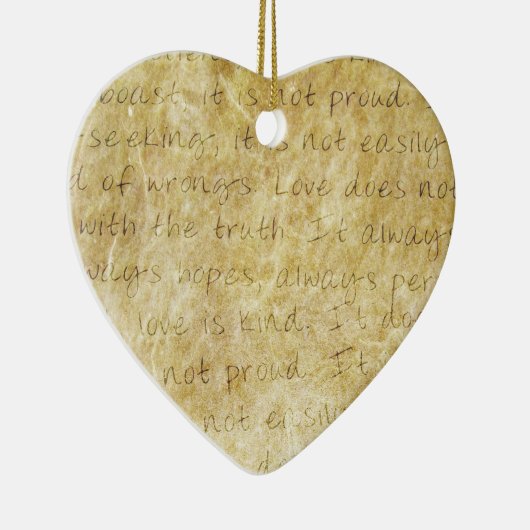 boast, it is not proud.
-seeking, it is not easily
d of wrongs. Love does not
with the truth. It always
ways hopes, always per
love is kind. It do
not proud. It
not easily
d